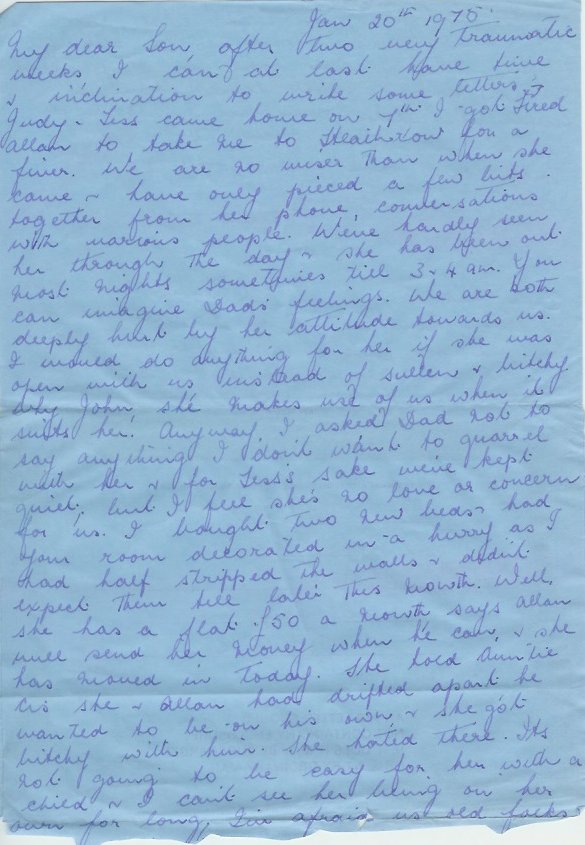 Jan 20th 1975
My dear Son, after two very traumatic
weeks I can at last have time
& inclination to write some letters,
Judy - Tess came home on 7th I got Fred
Allan to take me to Heathrow for a
fiver. We are no wiser than when she
came & have only pieced a few bits
together from her phone conversations
with various people. We've hardly seen
her through the day & she has been out
most nights sometimes till 3 & 4 am. You
can imagine Dad's feelings. We are both
deeply hurt by her attitude towards us.
I would do anything for her if she was
open with us instead of sullen & bitchy.
Why John, she makes use of us when it
suits her. Anyway, I asked Dad not to
say anything I don't want to quarrel
with her & for Tess's sake we've kept
quiet, but I feel she's no love or concern
for us. I bought two new beds & had
your room decorated in a hurry as I
had half stripped the walls & didn't
expect them till later this month. Well,
she has a flat £50 a month says Allan
will send her money when he can, & she
has moved in today. She told Auntie
Cis she & Allan had drifted apart he
wanted to be on his own & she got
bitchy with him. She hated there. Its
not going to be easy for her with a
child & I can't see her being on her
own for long, I'm afraid us old folks